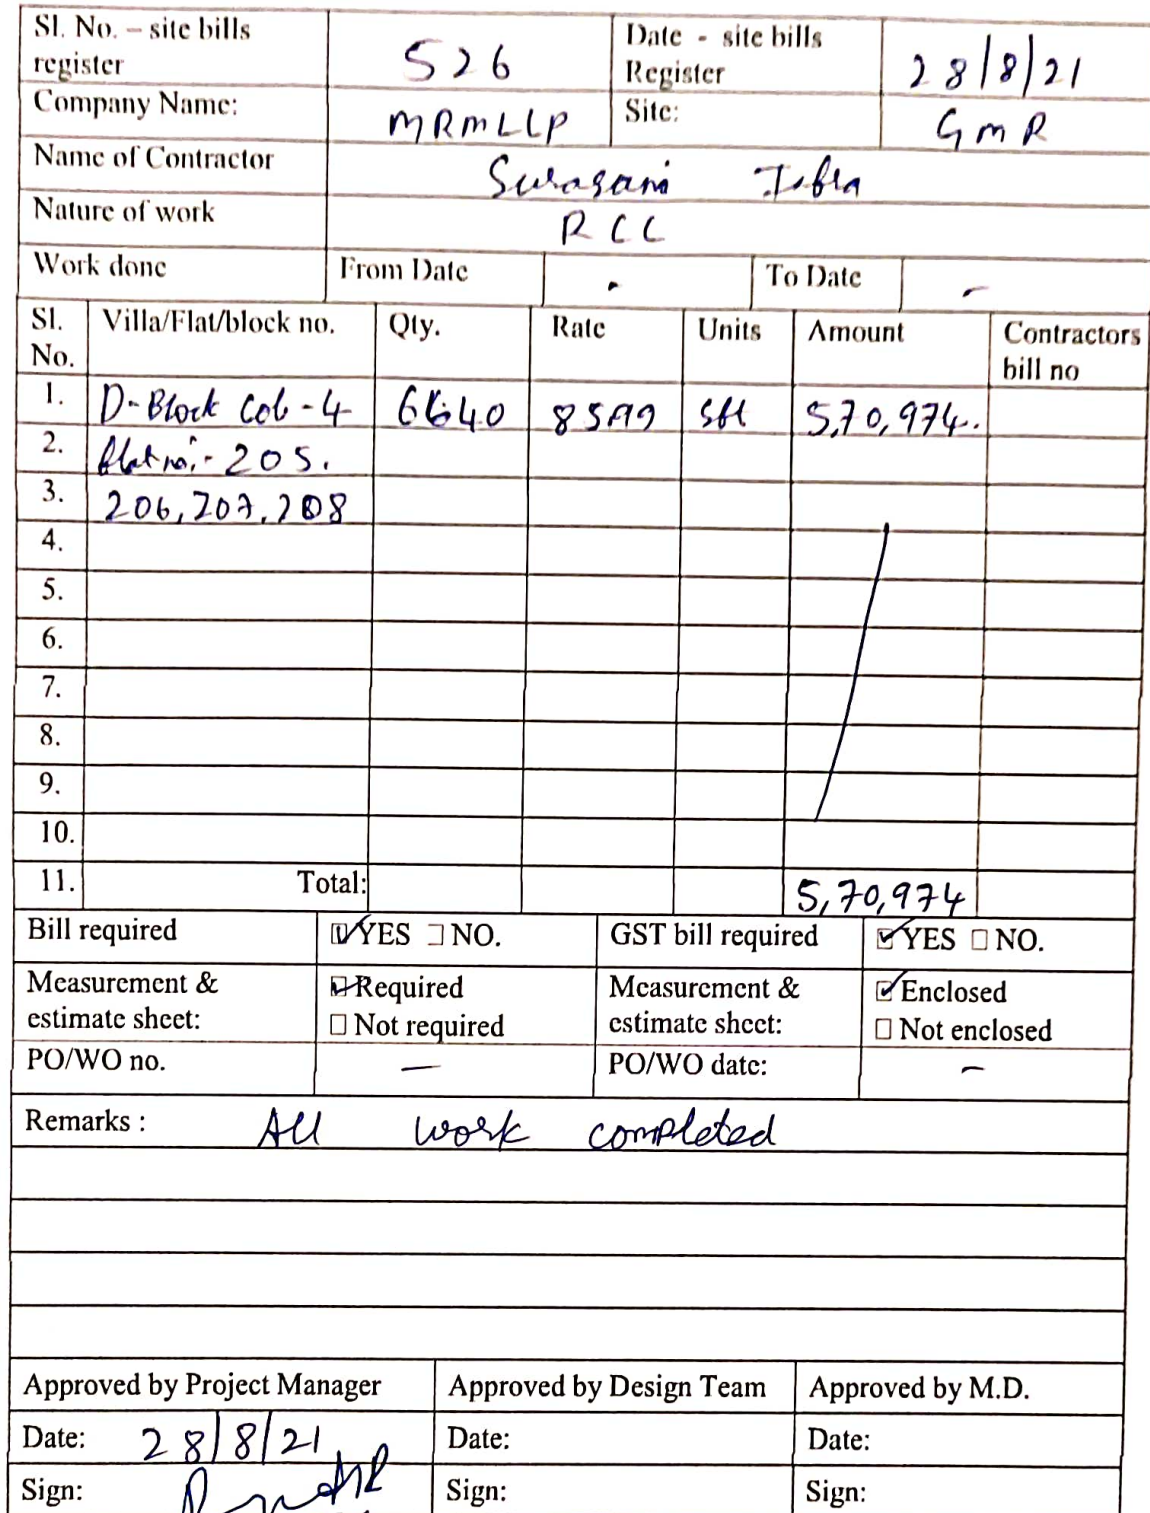 Sl. No. – site bills register 526 Date - site bills Register 28/8/21
Company Name: MRMLLP Site: GMR
Name of Contractor Surasani Infra
Nature of work RCC
Work done From Date - To Date -
Sl. No. Villa/Flat/block no. Qty. Rate Units Amount Contractors bill no
1. D-Block Cob-4 6640 85.99 sft 5,70,974.
2. flat no:- 205.
3. 206,207,208
4.
5.
6.
7.
8.
9.
10.
11. Total: 5,70,974
Bill required ☑YES ☐NO. GST bill required ☑YES ☐NO.
Measurement & estimate sheet: ☑Required ☐Not required Measurement & estimate sheet: ☑Enclosed ☐Not enclosed
PO/WO no. — PO/WO date: –
Remarks : All work completed
Approved by Project Manager Approved by Design Team Approved by M.D.
Date: 28/8/21 Date: Date:
Sign: Sign: Sign: